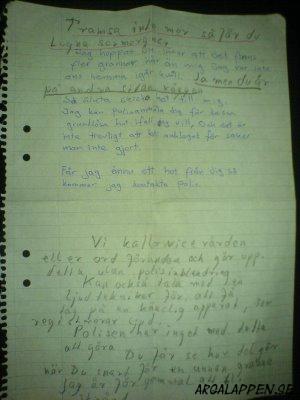 Tramsa inte mer så får du
Lugna sommarnätter
Jag hoppas du inser att det finns
fler grannar här än mig. Jag var inte
ens hemma igår kväll. Ja men du är
på andra sidan väggen
Så sluta skicka hot till mig.
Jag kan polisanmäla dig för
grundlösa hot ifall du vill, och det är
inte trevligt att bli anklagad för saker
man inte gjort.
Får jag ännu ett hot från dig så
kommer jag kontakta polis.
Vi kallar vice värden
eller ord föranden och gör upp
detta utan polisinblandning
Kan också tala med en
ljud tekniker för att få
låg på en känslig apparat, som
registrerar ljud.
Polisen har inget med detta
att göra
Du får se hur det går
när du snart får en annan granne
Jag är för gammal att
ARGALAPPEN.SE